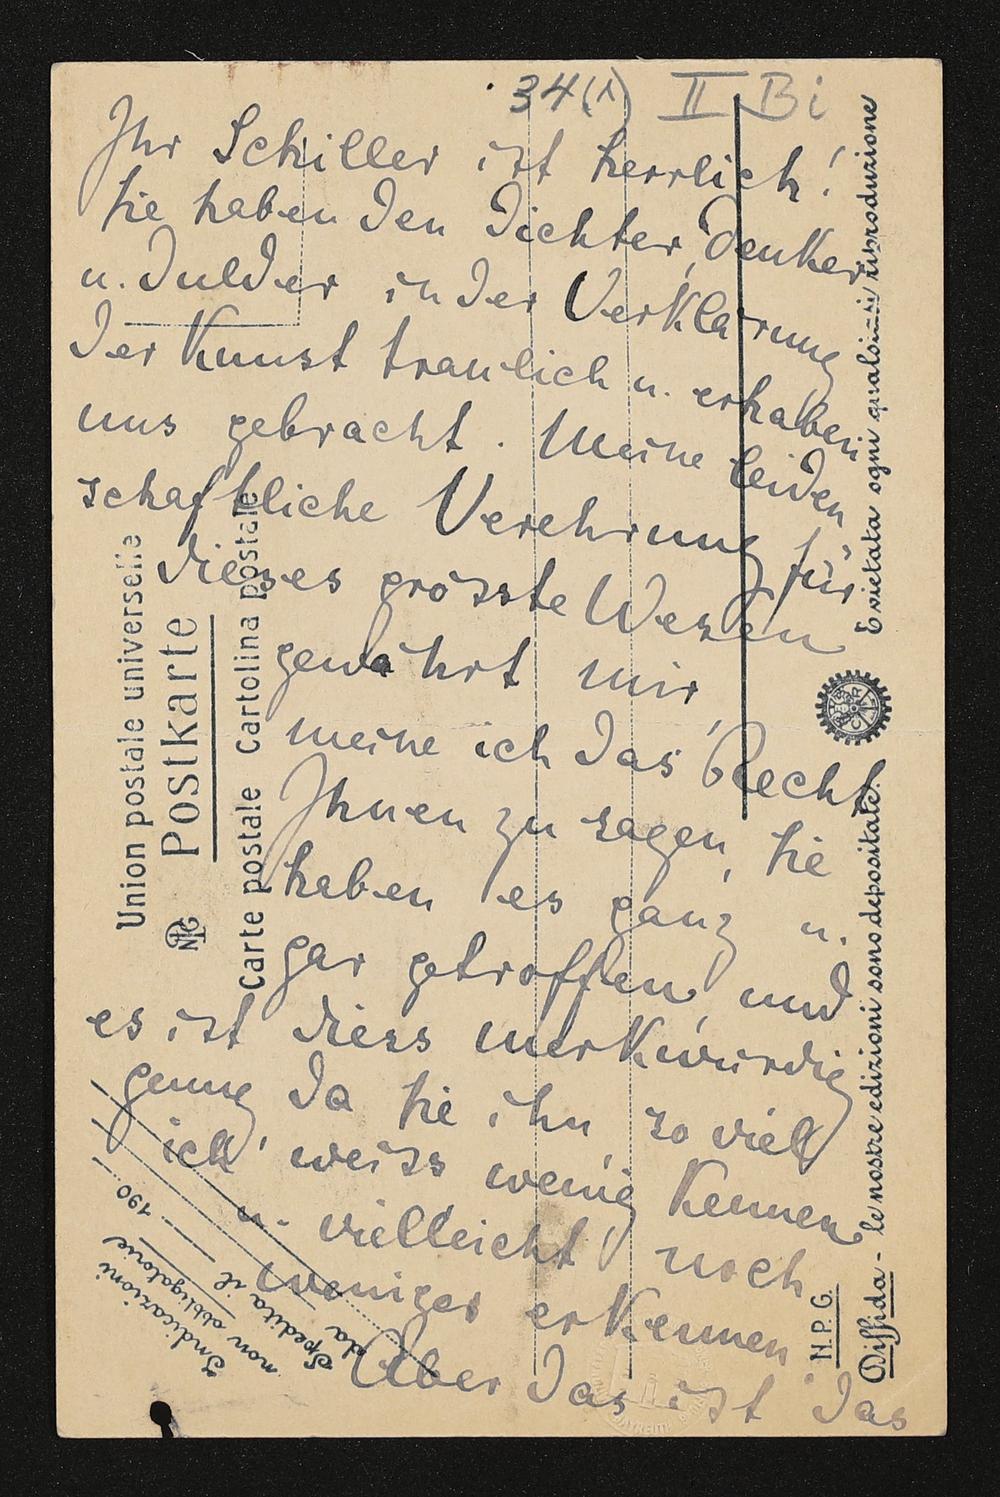 34(1) II Bi
Ihr Schiller ist herrlich!
Sie haben den Dichter, Denker
u. Dulder in der Verklärung
der Kunst traulich u. erhaben
uns gebracht. Meine leiden
schaftliche Verehrung für
dieses grösste Wesen
gewährt mir,
meine ich das Recht
Ihnen zu sagen, Sie
haben es ganz u.
gar getroffen, und
es ist diess merkwürdig
genug da Sie ihn so viel
ich weiss wenig kennen,
u. vielleicht noch
weniger erkennen
Aber das ist das
Union postale universelle
Postkarte
NPG
Carte postale Cartolina postale
È vietata ogni qualsiasi riproduzione
Diffida - le nostre edizioni sono depositate.
N.P.G.
Indicazioni
non obbligatorie
Spedita il 190
da